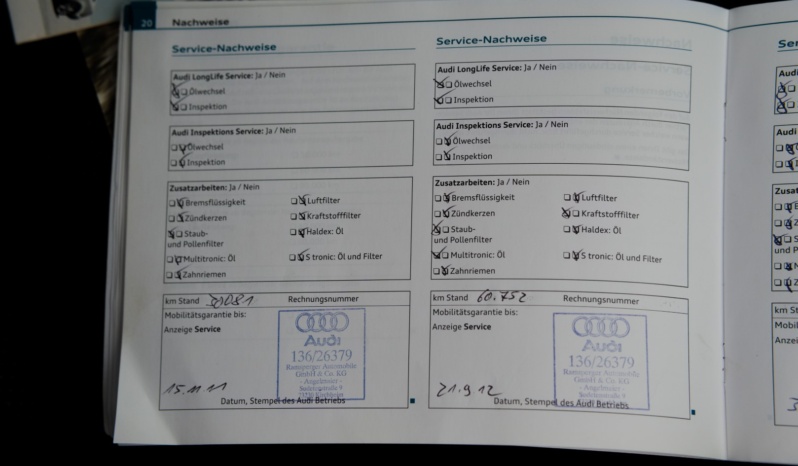 20 Nachweise
Service-Nachweise
Audi LongLife Service: Ja / Nein
Ölwechsel
Inspektion
Audi Inspektions Service: Ja / Nein
Ölwechsel
Inspektion
Zusatzarbeiten: Ja / Nein
Bremsflüssigkeit Luftfilter
Zündkerzen Kraftstofffilter
Staub- Haldex: Öl
und Pollenfilter
Multitronic: Öl S tronic: Öl und Filter
Zahnriemen
km Stand Rechnungsnummer
Mobilitätsgarantie bis:
Anzeige Service
Audi
136/26379
GmbH & Co. KG
15.11.11
Datum, Stempel des Audi Betriebs
Service-Nachweise
Audi LongLife Service: Ja / Nein
Ölwechsel
Inspektion
Audi Inspektions Service: Ja / Nein
Ölwechsel
Inspektion
Zusatzarbeiten: Ja / Nein
Bremsflüssigkeit Luftfilter
Zündkerzen Kraftstofffilter
Staub- Haldex: Öl
und Pollenfilter
Multitronic: Öl S tronic: Öl und Filter
Zahnriemen
km Stand 60.752 Rechnungsnummer
Mobilitätsgarantie bis:
Anzeige Service
Audi
136/26379
GmbH & Co. KG
21.9.12
Datum, Stempel des Audi Betriebs